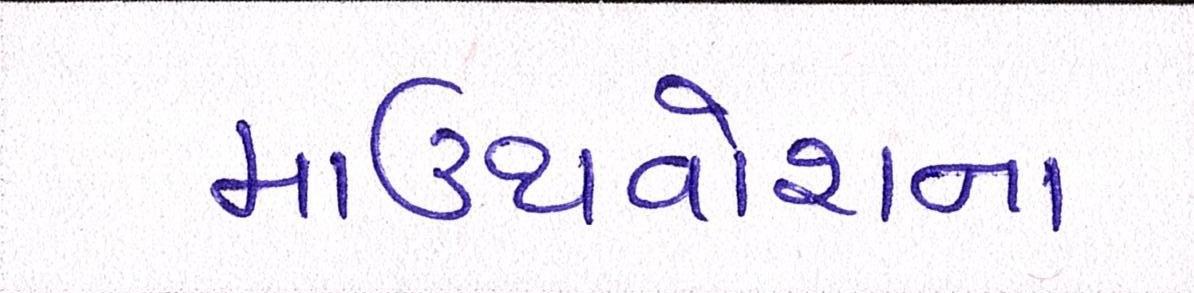 માઉથવોશના